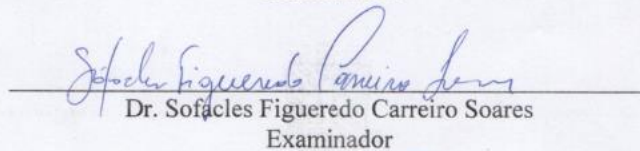 Sófocles Figueredo Carreiro Soares
Dr. Sofacles Figueredo Carreiro Soares
Examinador